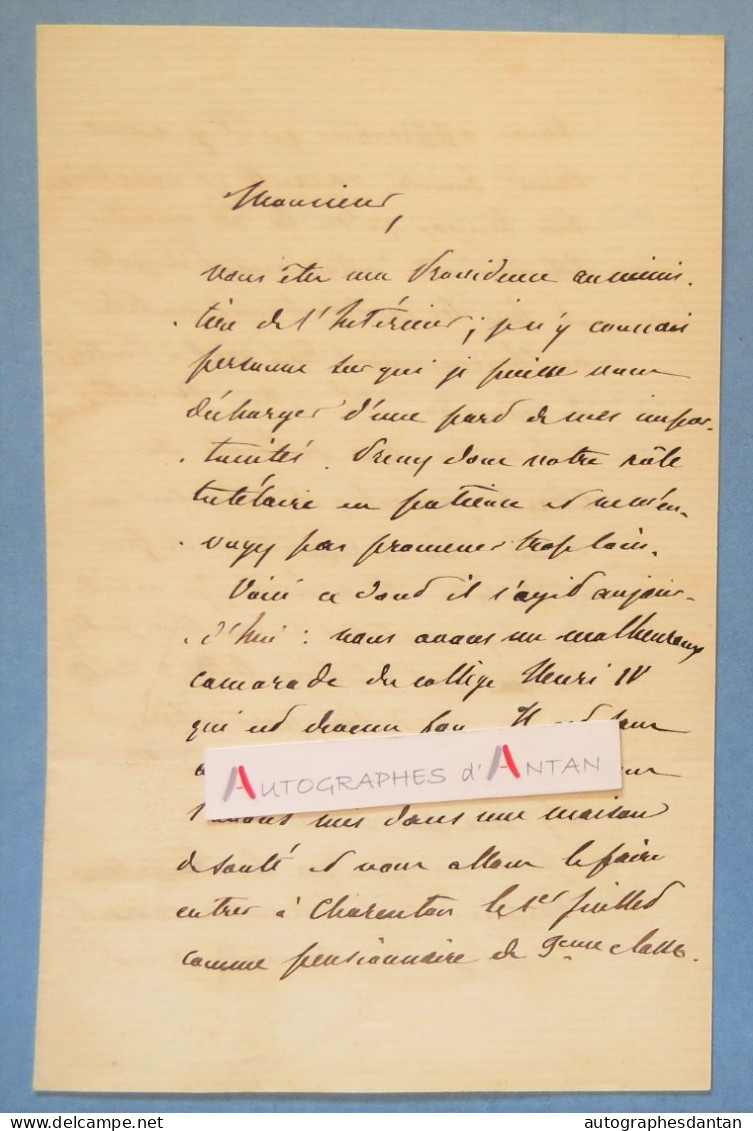 Monsieur,
vous êtes ma Providence au minis-
-tère de l'Intérieur ; je n'y connais
personne sur qui je puisse vous
décharger d'une part de mes impor-
-tunités. Prenez donc votre rôle
tutélaire en patience et ne m'en-
-voyez pas promener trop loin.
Voici ce dont il s'agit aujour-
-d'hui : nous avons un malheureux
camarade du collège Henri IV
qui est devenu fou. Il est sans
AUTOGRAPHES d'ANTAN
l'avons mis dans une maison
de santé et nous allons le faire
entrer à Charenton le 1er juillet
comme pensionnaire de 3eme classe.
autographesdantan